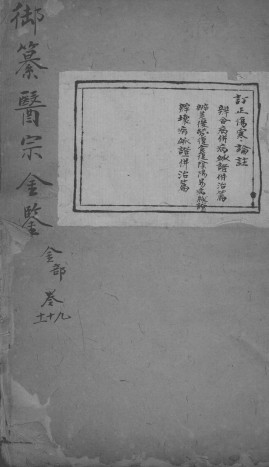 御纂醫宗金鑒
金部 卷
九十十一
訂正傷寒論註
辨合病併病脉證併治篇
辨差後勞復食復陰陽易病脉證
辨壞病脉證併治篇